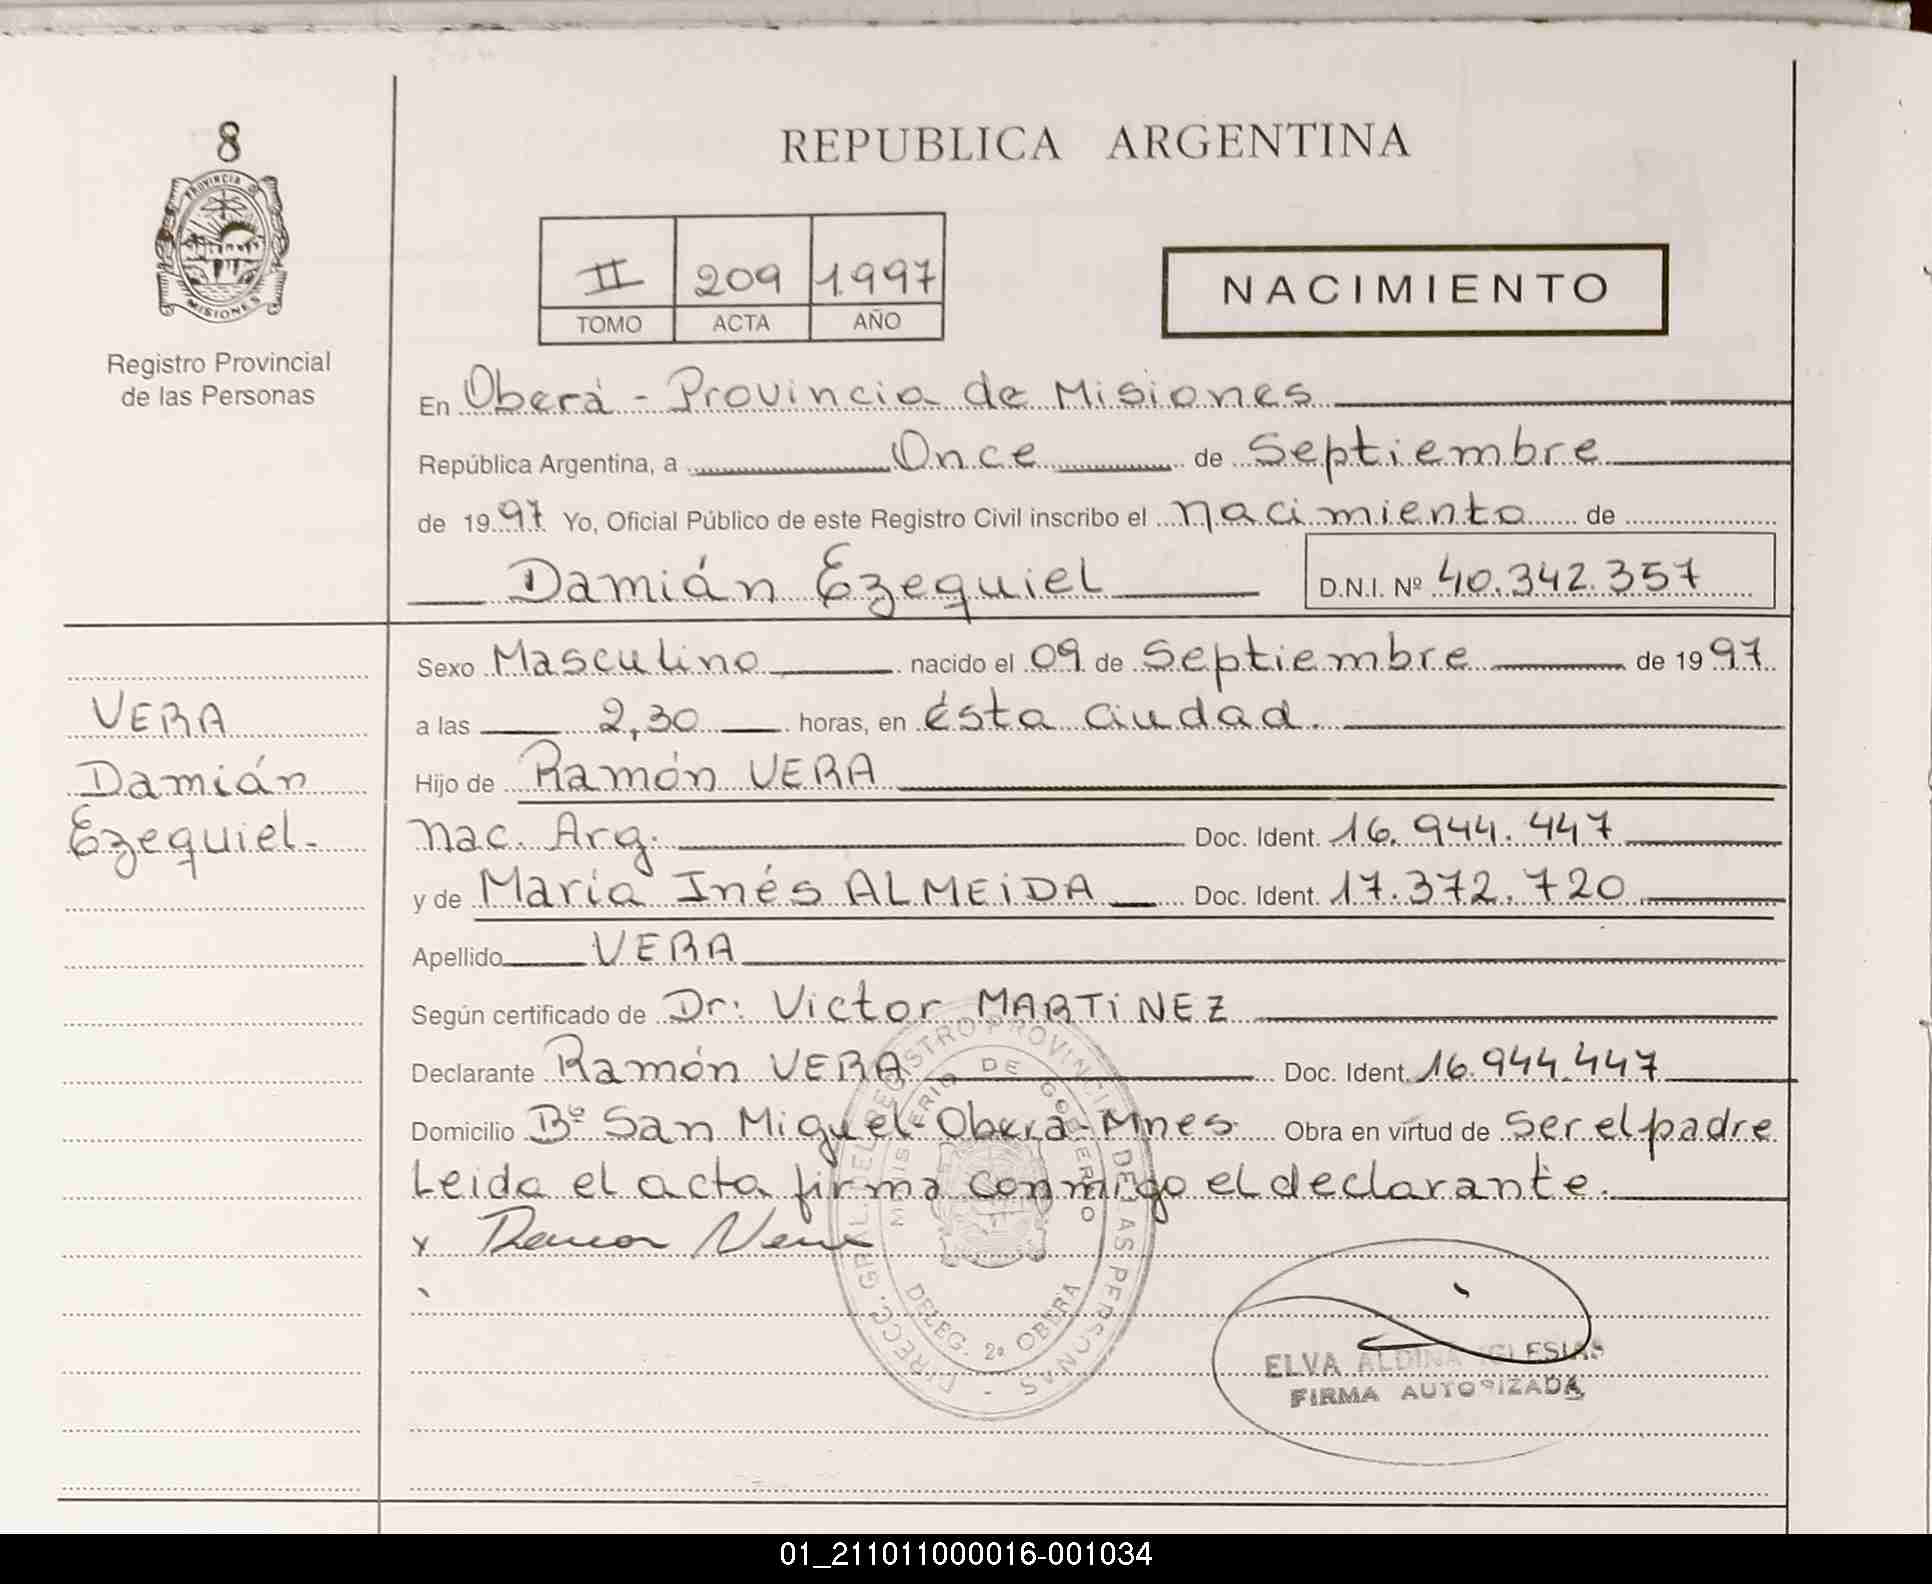 8
PROVINCIA D
MISIONES
Registro Provincial
de las Personas
REPUBLICA ARGENTINA
II 209 1.997
TOMO ACTA AÑO
NACIMIENTO
En Oberá - Provincia de Misiones
República Argentina, a Once de Septiembre
de 19 97 Yo, Oficial Público de este Registro Civil inscribo el nacimiento de
Damián Ezequiel D.N.I. Nº 40.342.357
Sexo Masculino nacido el 09 de Septiembre de 19 97
a las 2,30 horas, en ésta ciudad.
Hijo de Ramón VERA
nac. Arg. Doc. Ident. 16.944.447
y de María Inés ALMEIDA Doc. Ident. 17.372.720
Apellido VERA
Según certificado de Dr: Victor MARTINEZ
Declarante Ramón VERA Doc. Ident. 16.944.447
Domicilio Bº San Miguel-Oberá-Mnes. Obra en virtud de ser el padre
Leida el acta firma conmigo el declarante.
x Ramon Vera
VERA
Damián
Ezequiel.-
DIRECC. GRAL. DEL REGISTRO PROVINCIAL DE LAS PERSONAS -
MINISTERIO DE GOBIERNO
DELEG. 2ª OBERA
ELVA ALDINA IGLESIAS
FIRMA AUTORIZADA
01_211011000016-001034